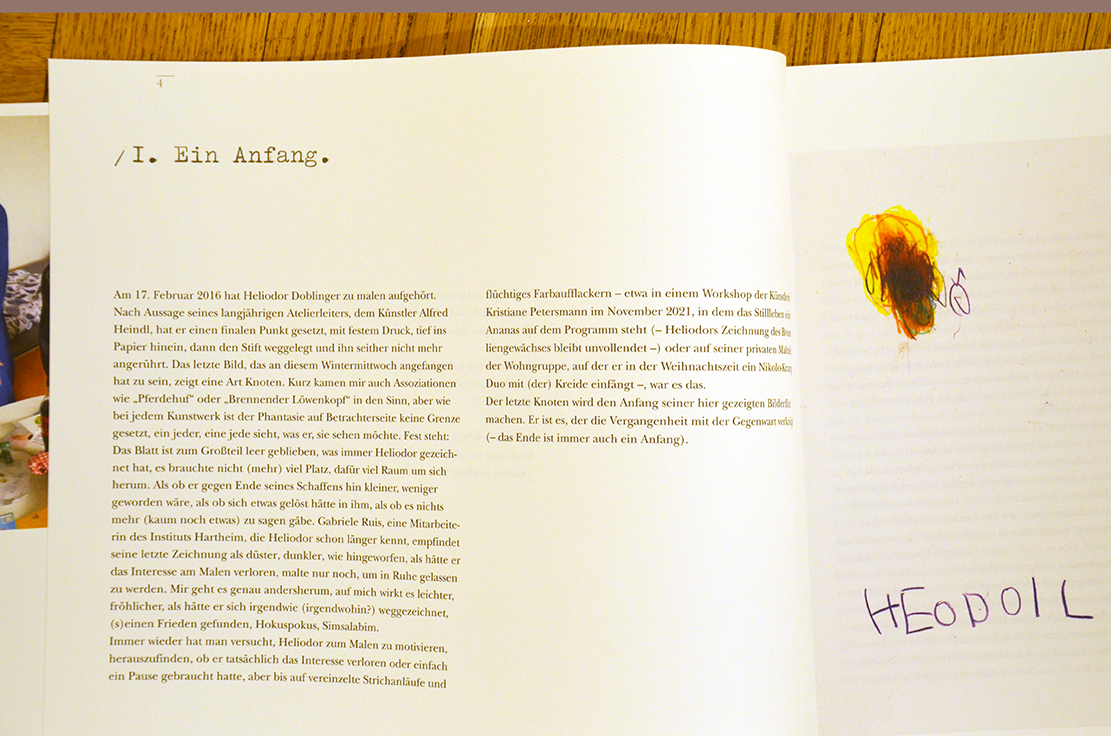 4
/I. Ein Anfang.
Am 17. Februar 2016 hat Heliodor Doblinger zu malen aufgehört.
Nach Aussage seines langjährigen Atelierleiters, dem Künstler Alfred
Heindl, hat er einen finalen Punkt gesetzt, mit festem Druck, tief ins
Papier hinein, dann den Stift weggelegt und ihn seither nicht mehr
angerührt. Das letzte Bild, das an diesem Wintermittwoch angefangen
hat zu sein, zeigt eine Art Knoten. Kurz kamen mir auch Assoziationen
wie „Pferdehuf“ oder „Brennender Löwenkopf“ in den Sinn, aber wie
bei jedem Kunstwerk ist der Phantasie auf Betrachterseite keine Grenze
gesetzt, ein jeder, eine jede sieht, was er, sie sehen möchte. Fest steht:
Das Blatt ist zum Großteil leer geblieben, was immer Heliodor gezeich-
net hat, es brauchte nicht (mehr) viel Platz, dafür viel Raum um sich
herum. Als ob er gegen Ende seines Schaffens hin kleiner, weniger
geworden wäre, als ob sich etwas gelöst hätte in ihm, als ob es nichts
mehr (kaum noch etwas) zu sagen gäbe. Gabriele Ruis, eine Mitarbeite-
rin des Instituts Hartheim, die Heliodor schon länger kennt, empfindet
seine letzte Zeichnung als düster, dunkler, wie hingeworfen, als hätte er
das Interesse am Malen verloren, malte nur noch, um in Ruhe gelassen
zu werden. Mir geht es genau andersherum, auf mich wirkt es leichter,
fröhlicher, als hätte er sich irgendwie (irgendwohin?) weggezeichnet,
(s)einen Frieden gefunden, Hokuspokus, Simsalabim.
Immer wieder hat man versucht, Heliodor zum Malen zu motivieren,
herauszufinden, ob er tatsächlich das Interesse verloren oder einfach
ein Pause gebraucht hatte, aber bis auf vereinzelte Strichanläufe und
flüchtiges Farbaufflackern – etwa in einem Workshop der
Kristiane Petersmann im November 2021, in dem das Stillleben
Ananas auf dem Programm steht (– Heliodors Zeichnung des
liengewächses bleibt unvollendet –) oder auf seiner privaten
der Wohngruppe, auf der er in der Weihnachtszeit ein
Duo mit (der) Kreide einfängt –, war es das.
Der letzte Knoten wird den Anfang seiner hier gezeigten
machen. Er ist es, der die Vergangenheit mit der Gegenwart
(– das Ende ist immer auch ein Anfang).
HEODOIL